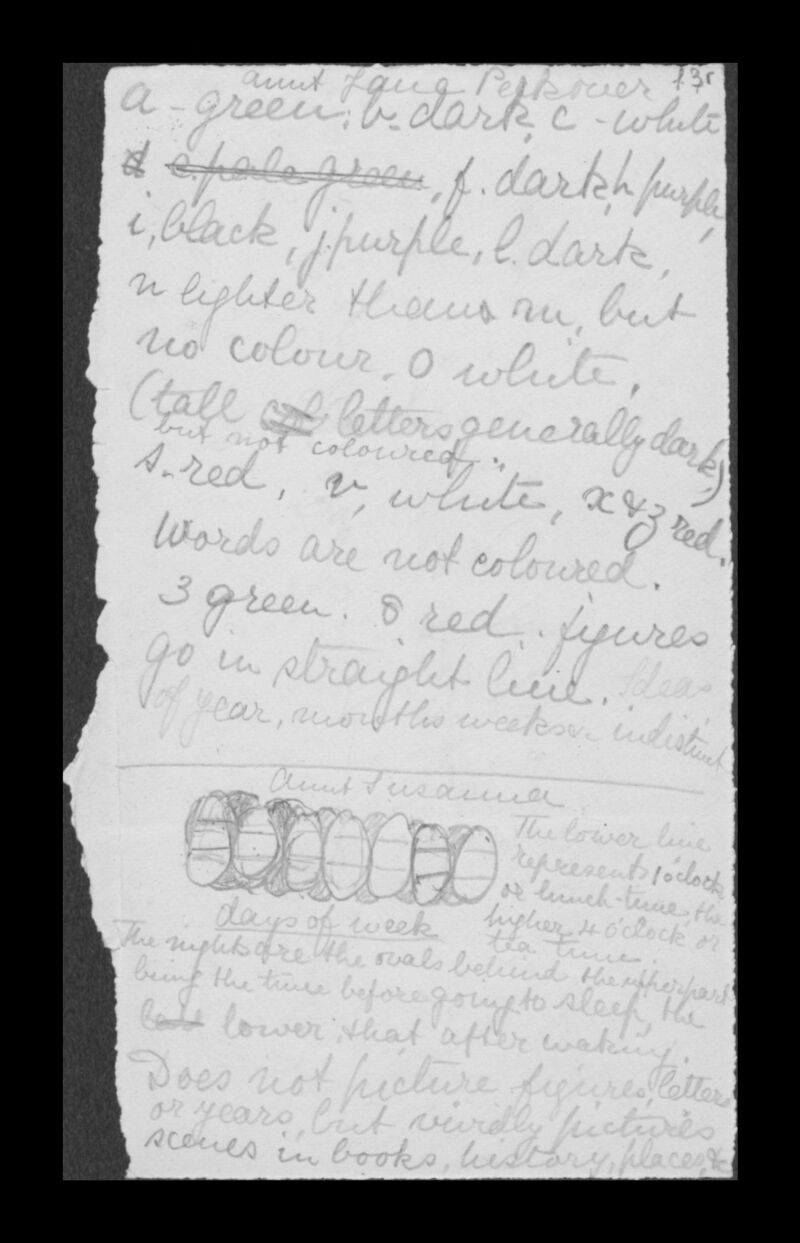 aunt Jane Peckover 13r
a - green; b. dark, c - white
d e. pale green, f. dark, h purple,
i, black, j. purple, l. dark,
n lighter than m, but
no colour. O white,
(tall letters generally dark,)
but not coloured.
s. red, v, white, x & z red.
Words are not coloured.
3 green. 8 red. figures
go in straight line. Ideas
of year, months weeks indistinct
aunt Susanna
The lower line
represents 1 o'clock
or lunch-time, the
higher 4 o'clock or
tea time.
days of week
The nights are the ovals behind the upper part
being the time before going to sleep, the
lower, that after waking.
Does not picture figures, letters
or years, but vividly pictures
scenes in books, history, places, &c